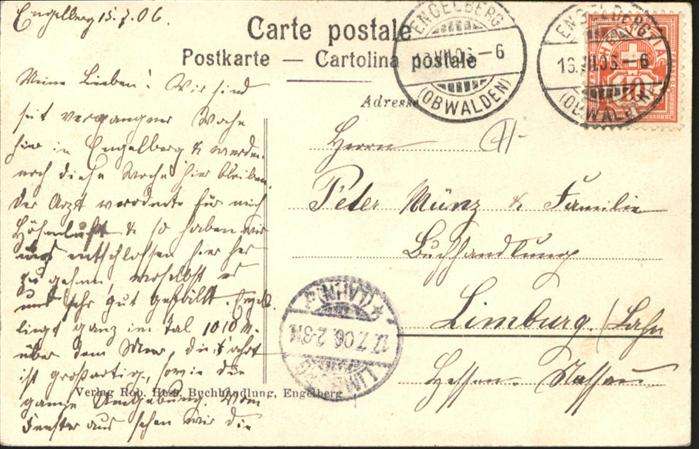 Engelberg 15.7.06.
Carte postale
Postkarte — Cartolina postale
ENGELBERG
16.VII.06.–6
(OBWALDEN)
ENGELBERG
16.VII.06.–6
(OBWALDEN)
10
Adresse
Meine Lieben! Wir sind
seit vergangener Woche
hier in Engelberg & werden
noch diese Woche hier bleiben.
Der Arzt verordnete für mich
Höhenluft & so haben wir
uns entschlossen hier her
zu gehen, woselbst es
uns sehr gut gefällt. Engel-
liegt ganz im Tal 1010 M.
über dem Meer, die Fahrt
ist großartig, sowie die
ganze Umgebung. Vom
Fenster aus sehen wir die
Herrn
Peter Münz & Familie
Buchhandlung
Limburg /Lahn
Hessen-Nassau
LIMBURG
17.7.06. 2-3N
(LAHN)
Verlag Rob. Hess, Buchhandlung, Engelberg